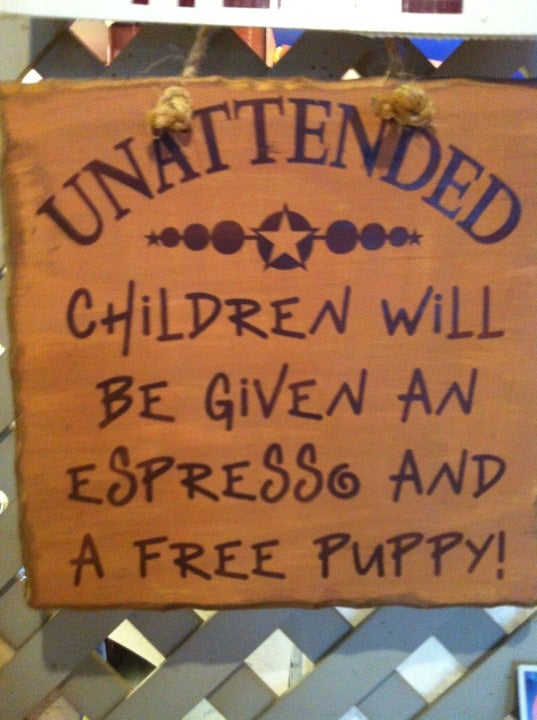 UNATTENDED
CHiLDREN WiLL
BE GiVEN AN
ESPRESSO AND
A FREE PUPPY!